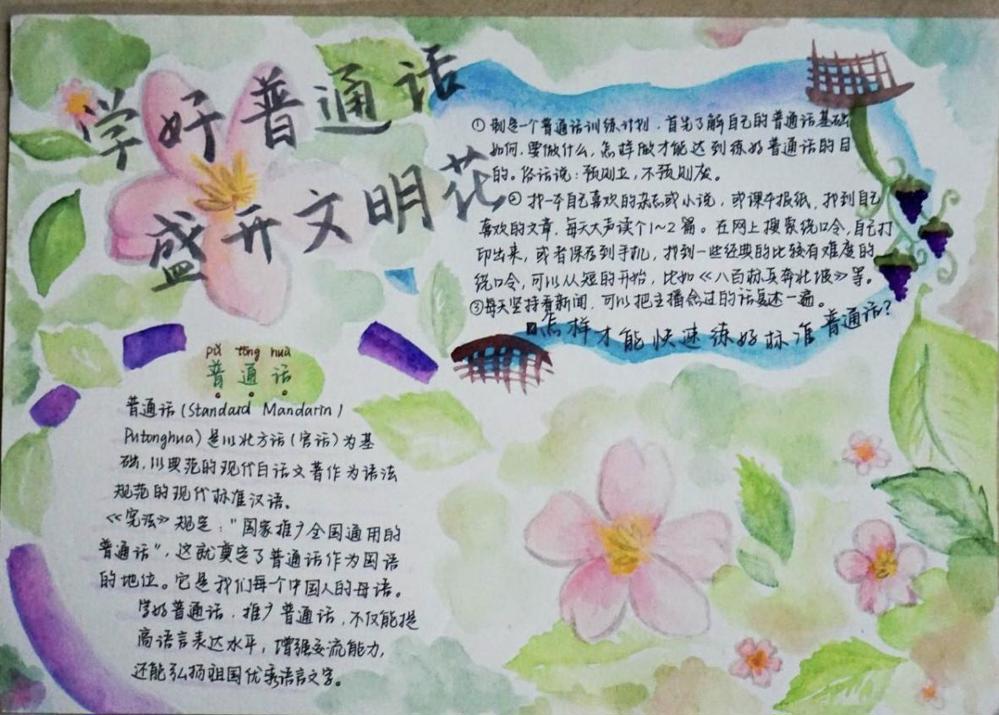 学好普通话
盛开文明花
①制定一个普通话训练计划，首先了解自己的普通话基础
如何，要做什么，怎样做才能达到练好普通话的目
的。俗话说：预则立，不预则废。
②找一本自己喜欢的杂志或小说，或课本报纸，找到自己
喜欢的文章，每天大声读个1~2篇。在网上搜索绕口令，自己打
印出来，或者保存到手机，找到一些经典的比较有难度的
绕口令，可以从短的开始，比如《八百标兵奔北坡》等。
③每天坚持看新闻，可以把主播念过的话复述一遍。
怎样才能快速练好标准普通话？
pǔ tōng huà
普通话
普通话(Standard Mandarin/
Putonghua)是以北方话(官话)为基
础，以典范的现代白话文著作为语法
规范的现代标准汉语。
《宪法》规定："国家推广全国通用的
普通话"，这就奠定了普通话作为国语
的地位。它是我们每个中国人的母语。
学好普通话，推广普通话，不仅能提
高语言表达水平，增强交流能力，
还能弘扬祖国优秀语言文字。